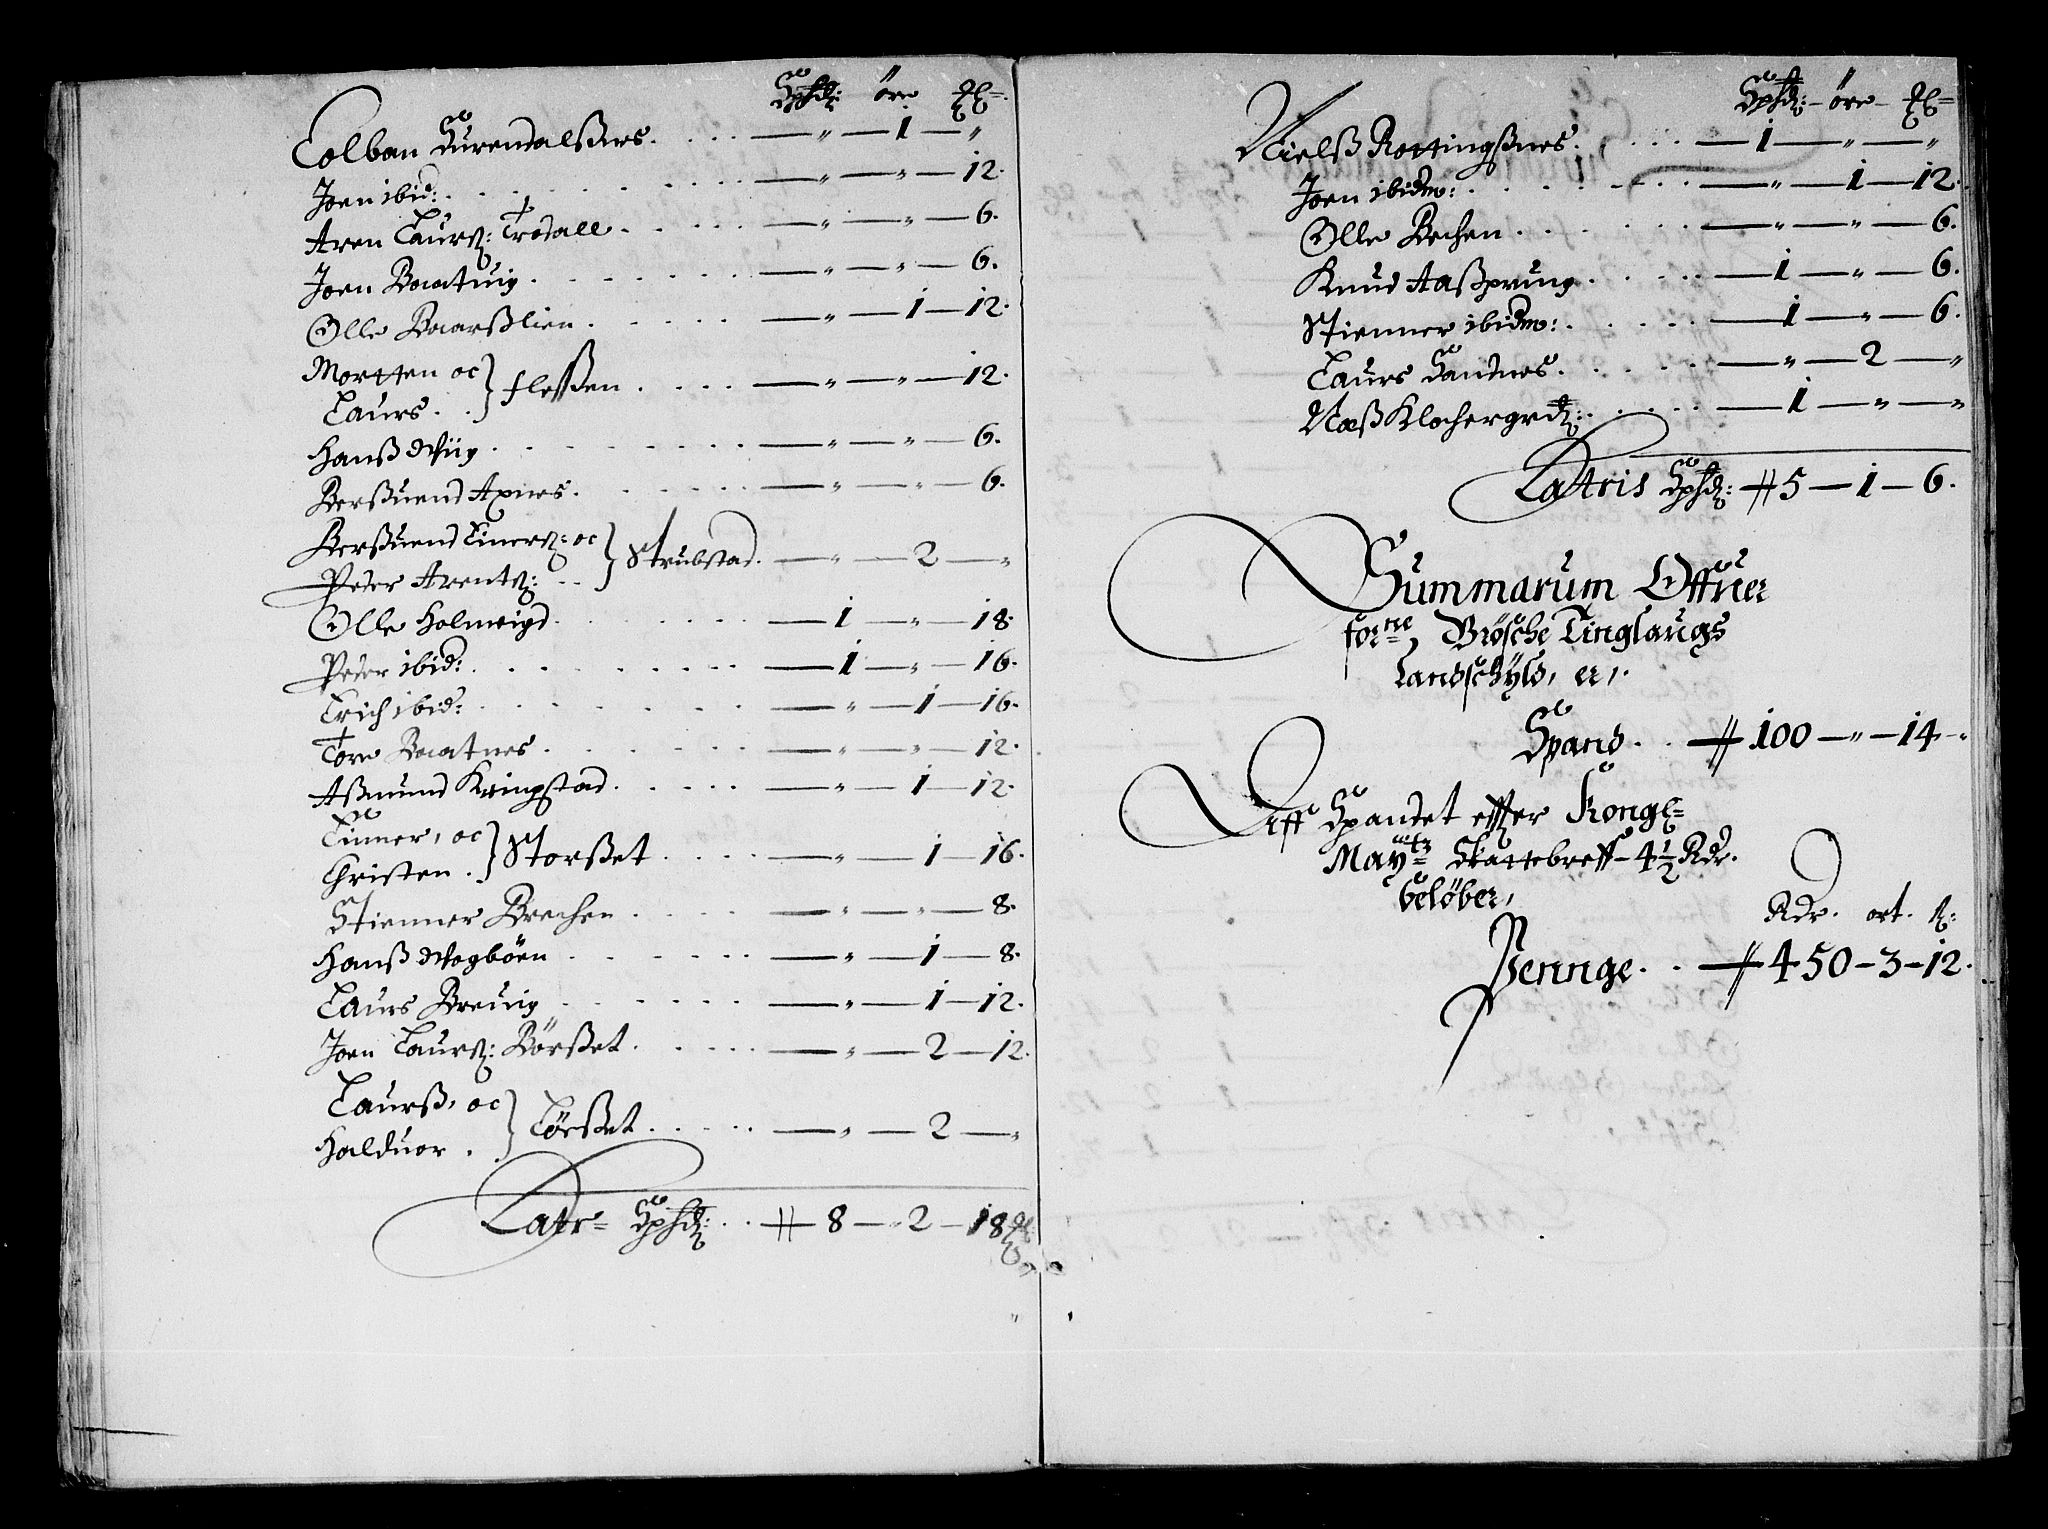 Spd: øre ℔
Colban Surendalßøes. — " — 1 — "
Joen ibid: — " — " — 12.
Aren Laurß: Trødall. — " — " — 6.
Joen Baatuig. — " — " — 6.
Olle Baarßlien. — " — 1 — 12.
Mortten oc
Laurs. } flessen. — " — " — 12.
Hanß Wiig. — " — " — 6.
Berßuend Axnes. — " — " — 6.
Berßuend Einerß: oc
Peder Arentß: } Strubstad. — " — 2 — "
Olle Holmeigd. — 1 — " — 18.
Peder ibid: — 1 — " — 16.
Erich ibid: — " — 1 — 16.
Tore Baatnes. — " — " — 12.
Aßmund Kringstad. — " — 1 — 12.
Einer, oc
Christen. } Storßet. — " — 1 — 16.
Stienner Brechen. — " — " — 8.
Hanß Wogböen — " — 1 — 8.
Laurs Breuig — " — 1 — 12.
Joen Laurß: Börßet. — " — 2 — 12.
Laurß, oc
Halduor. } Lörßet. — " — 2 — "
Latr= Spd: 8 — 2 — 18 ℔
Spd: — øre — ℔
Nielß Rottingßnes. — 1 — " — "
Joen ibidm: — " — 1 — 12.
Olle Bechen. — " — " — 6.
Knud Aaßprung. — 1 — " — 6.
Stienner ibidm: — 1 — " — 6.
Laurs Sandnes. — " — 2 — "
Næß Klochergrd: — 1 — " — "
Latris Spd: 5 — 1 — 6.
Summarum Offuer
forne, Brösche Tinglaugs
Landschÿld, er,
Spand. 100 — " — 14 — "
Aff Spandet effter Kongl=
Maytz Skattebreff — 4½ Rdr.
belöber,
Rdr. ort. ß:
Penninge. 450 — 3 — 12.